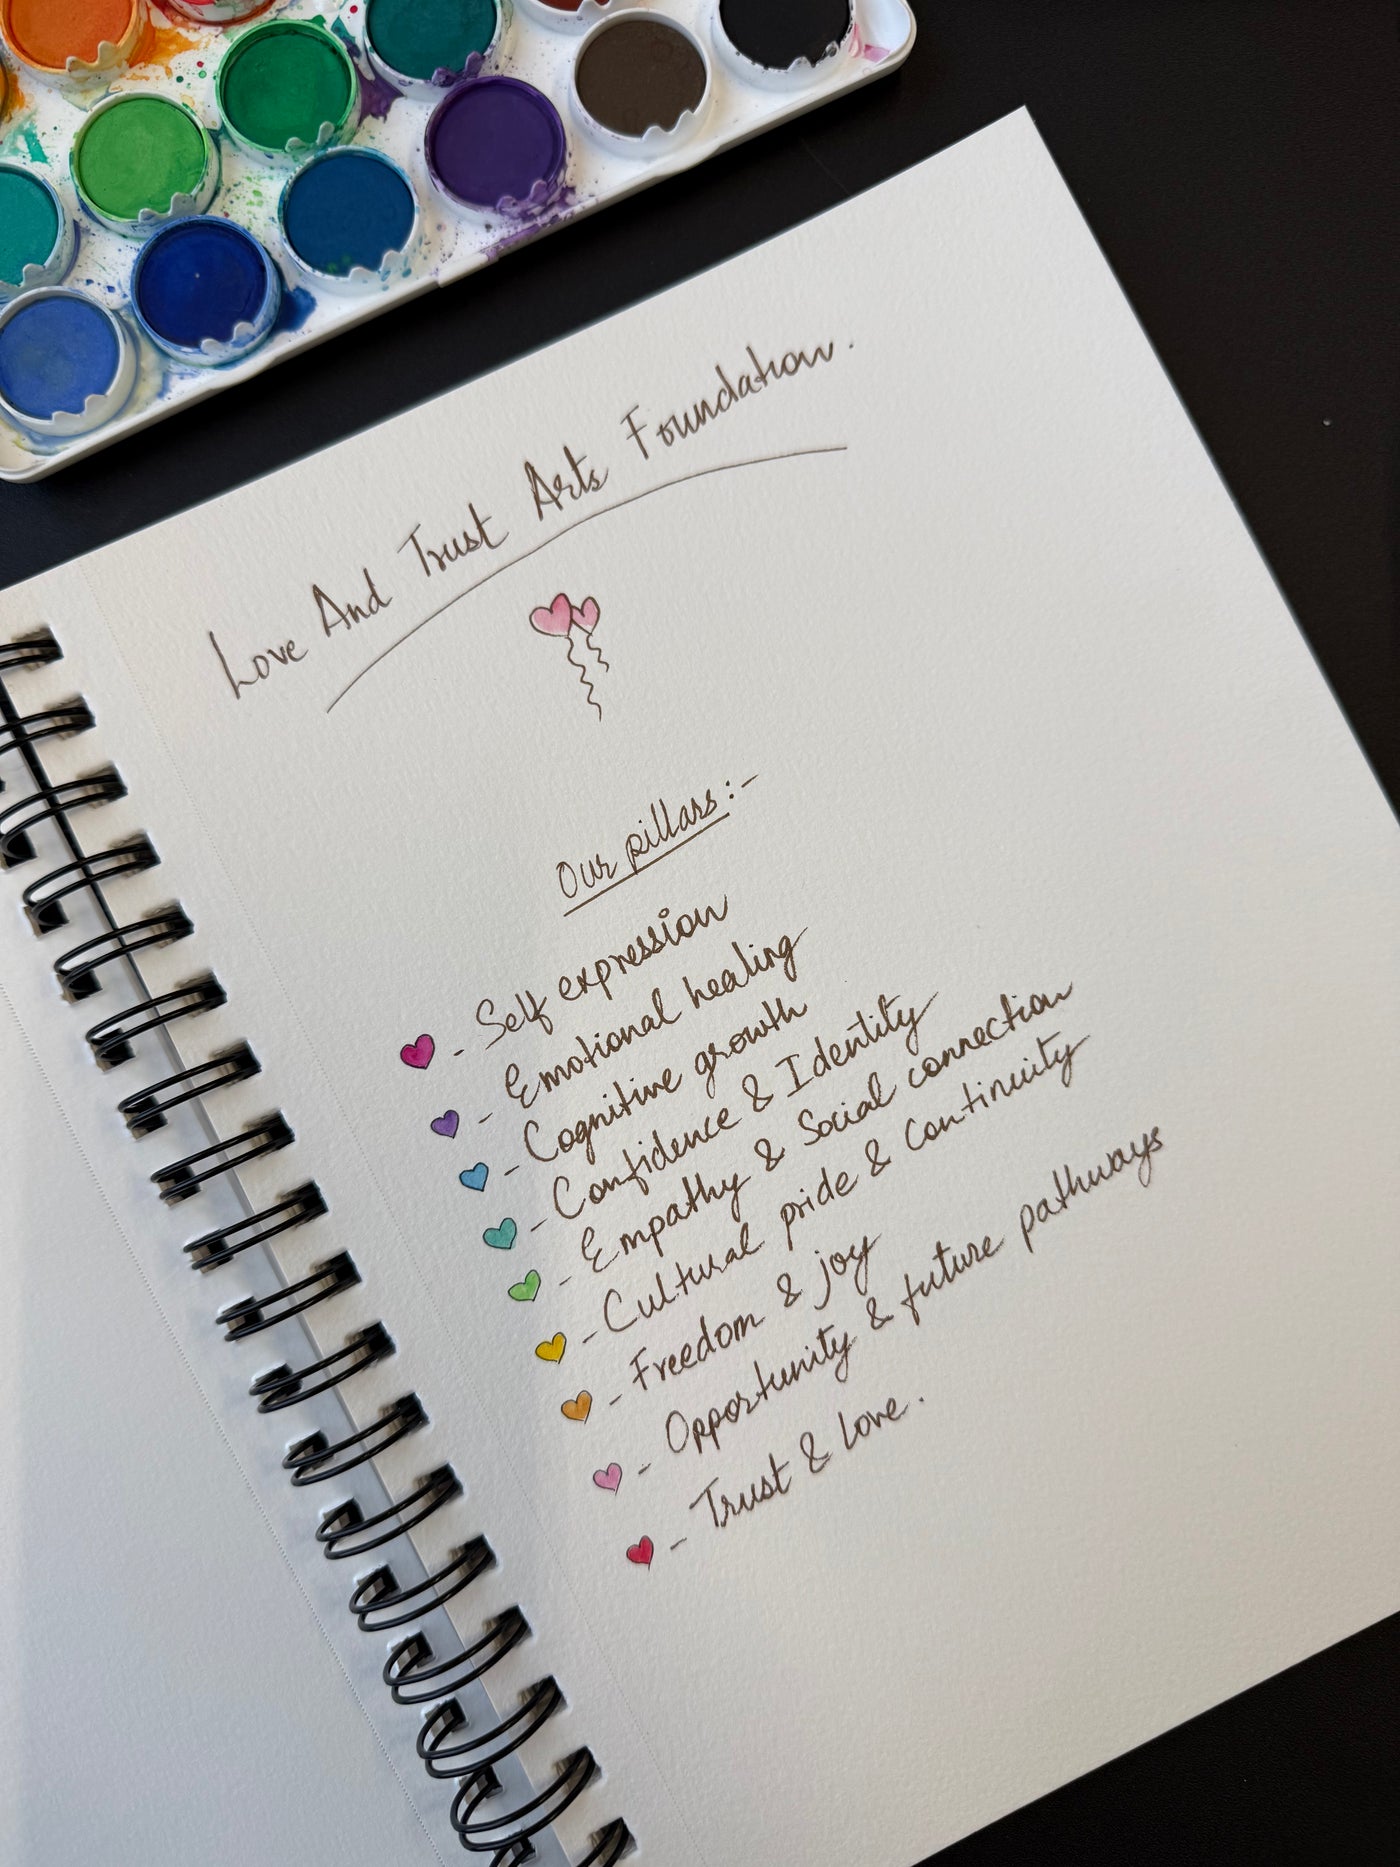 Love And Trust Arts Foundation.
Our pillars:-
- Self expression
- Emotional healing
- Cognitive growth
- Confidence & Identity
- Empathy & Social connection
- Cultural pride & Continuity
- Freedom & joy
- Opportunity & future pathways
- Trust & Love.